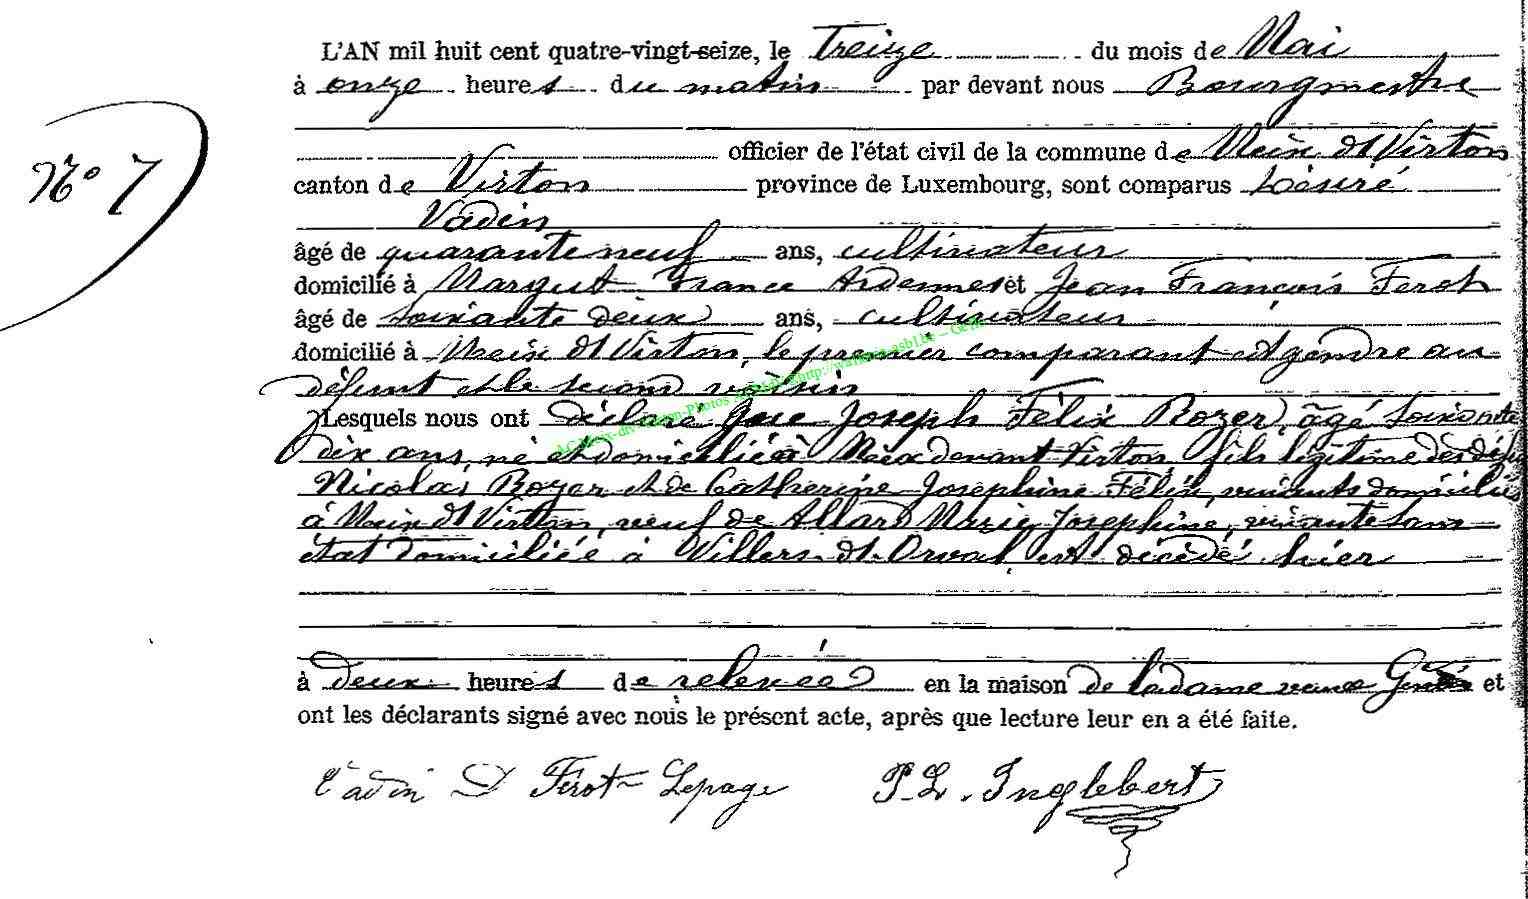 L'AN mil huit cent quatre-vingt-seize, le Treize du mois de Mai
à onze heures du matin par devant nous Bourgmestre
officier de l'état civil de la commune de Meix dt Virton
N° 7
canton de Virton province de Luxembourg, sont comparus Désiré
Vadin
âgé de quarante neuf ans, cultivateur
domicilié à Margut France Ardennes et Jean François Ferot
âgé de soixante deux ans, cultivateur
domicilié à Meix dt Virton, le premier comparant est gendre au
défunt et le second voisin
Lesquels nous ont déclaré que Joseph Félix Rozer, âgé soixante
dix ans, né et domicilié à Meix devant Virton fils légitime des
Nicolas Rozer et de Catherine Josephine Félix, vivants domiciliés
à Meix dt Virton, veuf de Allard Marie Josephine, vivante sans
état domiciliée à Villers dt Orval, est décédé hier
à deux heures de relevée en la maison de la dame veuve et
ont les déclarants signé avec nous le présent acte, après que lecture leur en a été faite.
Vadin D Férot Lepage P. L. Inglebert